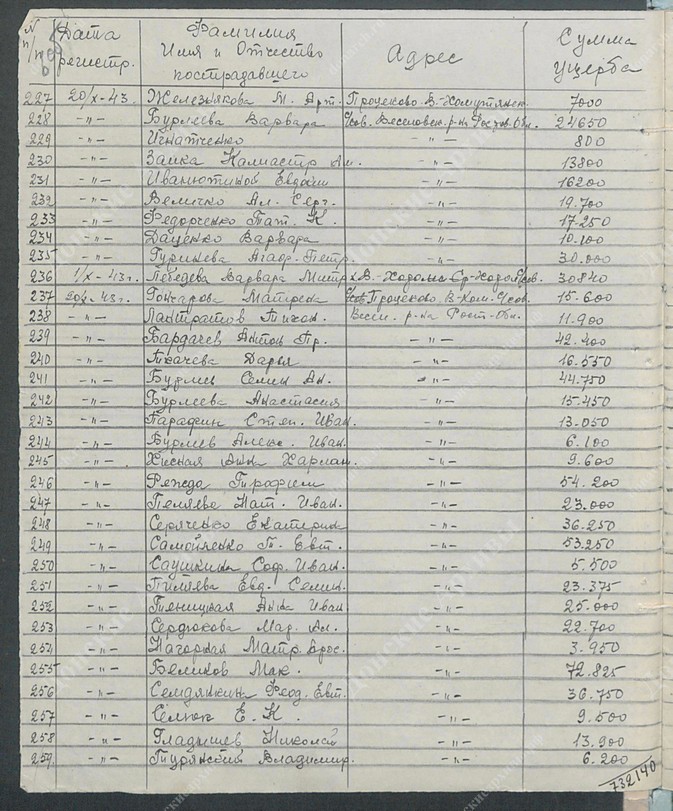 N п/п Дата регистр. Фамилия Имя и Отчество пострадавшего Адрес Сумма ущерба
227 20/X-43. Железнякова М. Арт. Проценово В-Хомутянск. 7000
228 -"- Бурлева Варвара с/сов. Веселовск. р-на Рост. Обл. 24650
229 -"- Игнатченко -"- 800
230 -"- Заика Калистр -"- 13800
231 -"- Иванютиков Евдоким -"- 16200
232 -"- Величко Ал. Серг. -"- 19.700
233 -"- Федорченко Тат. К. -"- 17.250
234 -"- Даценко Варвара -"- 10.100
235 -"- -"- 30.000
236 1/X-43г. Лебедева Варвара Дмитр 30840
237 Гончарова Матрена с/сов. 15.600
238 -"- Пантратов Тихон. Весел. р-на Рост-Обл. 11.900
239 -"- Бардачев Антон Пр. -"- 42.400
240 -"- Ткачева Дарья -"- 16.550
241 -"- Бурлев Семен Ан. -"- 44.750
242 -"- Бурлева Анастасия -"- 15.450
243 -"- Гарафин Степ. Иван. -"- 13.050
244 -"- Бурлев Алекс. Иван. -"- 6.100
245 -"- Анна Харлам. -"- 9.600
246 -"- -"- 54.200
247 -"- Нат. Иван. -"- 23.000
248 -"- Серяченко Екатерина -"- 36.250
249 -"- Самойленко Т. Евт. -"- 53.250
250 -"- Саушкина Соф. Иван. -"- 5.500
251 -"- Евд. Семен. -"- 23.375
252 -"- Анна Иван -"- 25.000
253 -"- Сердюкова Мар. Ан. -"- 22.700
254 -"- Нагорная Матр. -"- 3.950
255 -"- Беликов Мак. -"- 72.825
256 -"- Семдянкин Феод. Евт. -"- 36.750
257 -"- Е. К. -"- 9.500
258 -"- Гладышев Николай -"- 13.900
259 -"- Турянский Владимир. -"- 6.200
732140